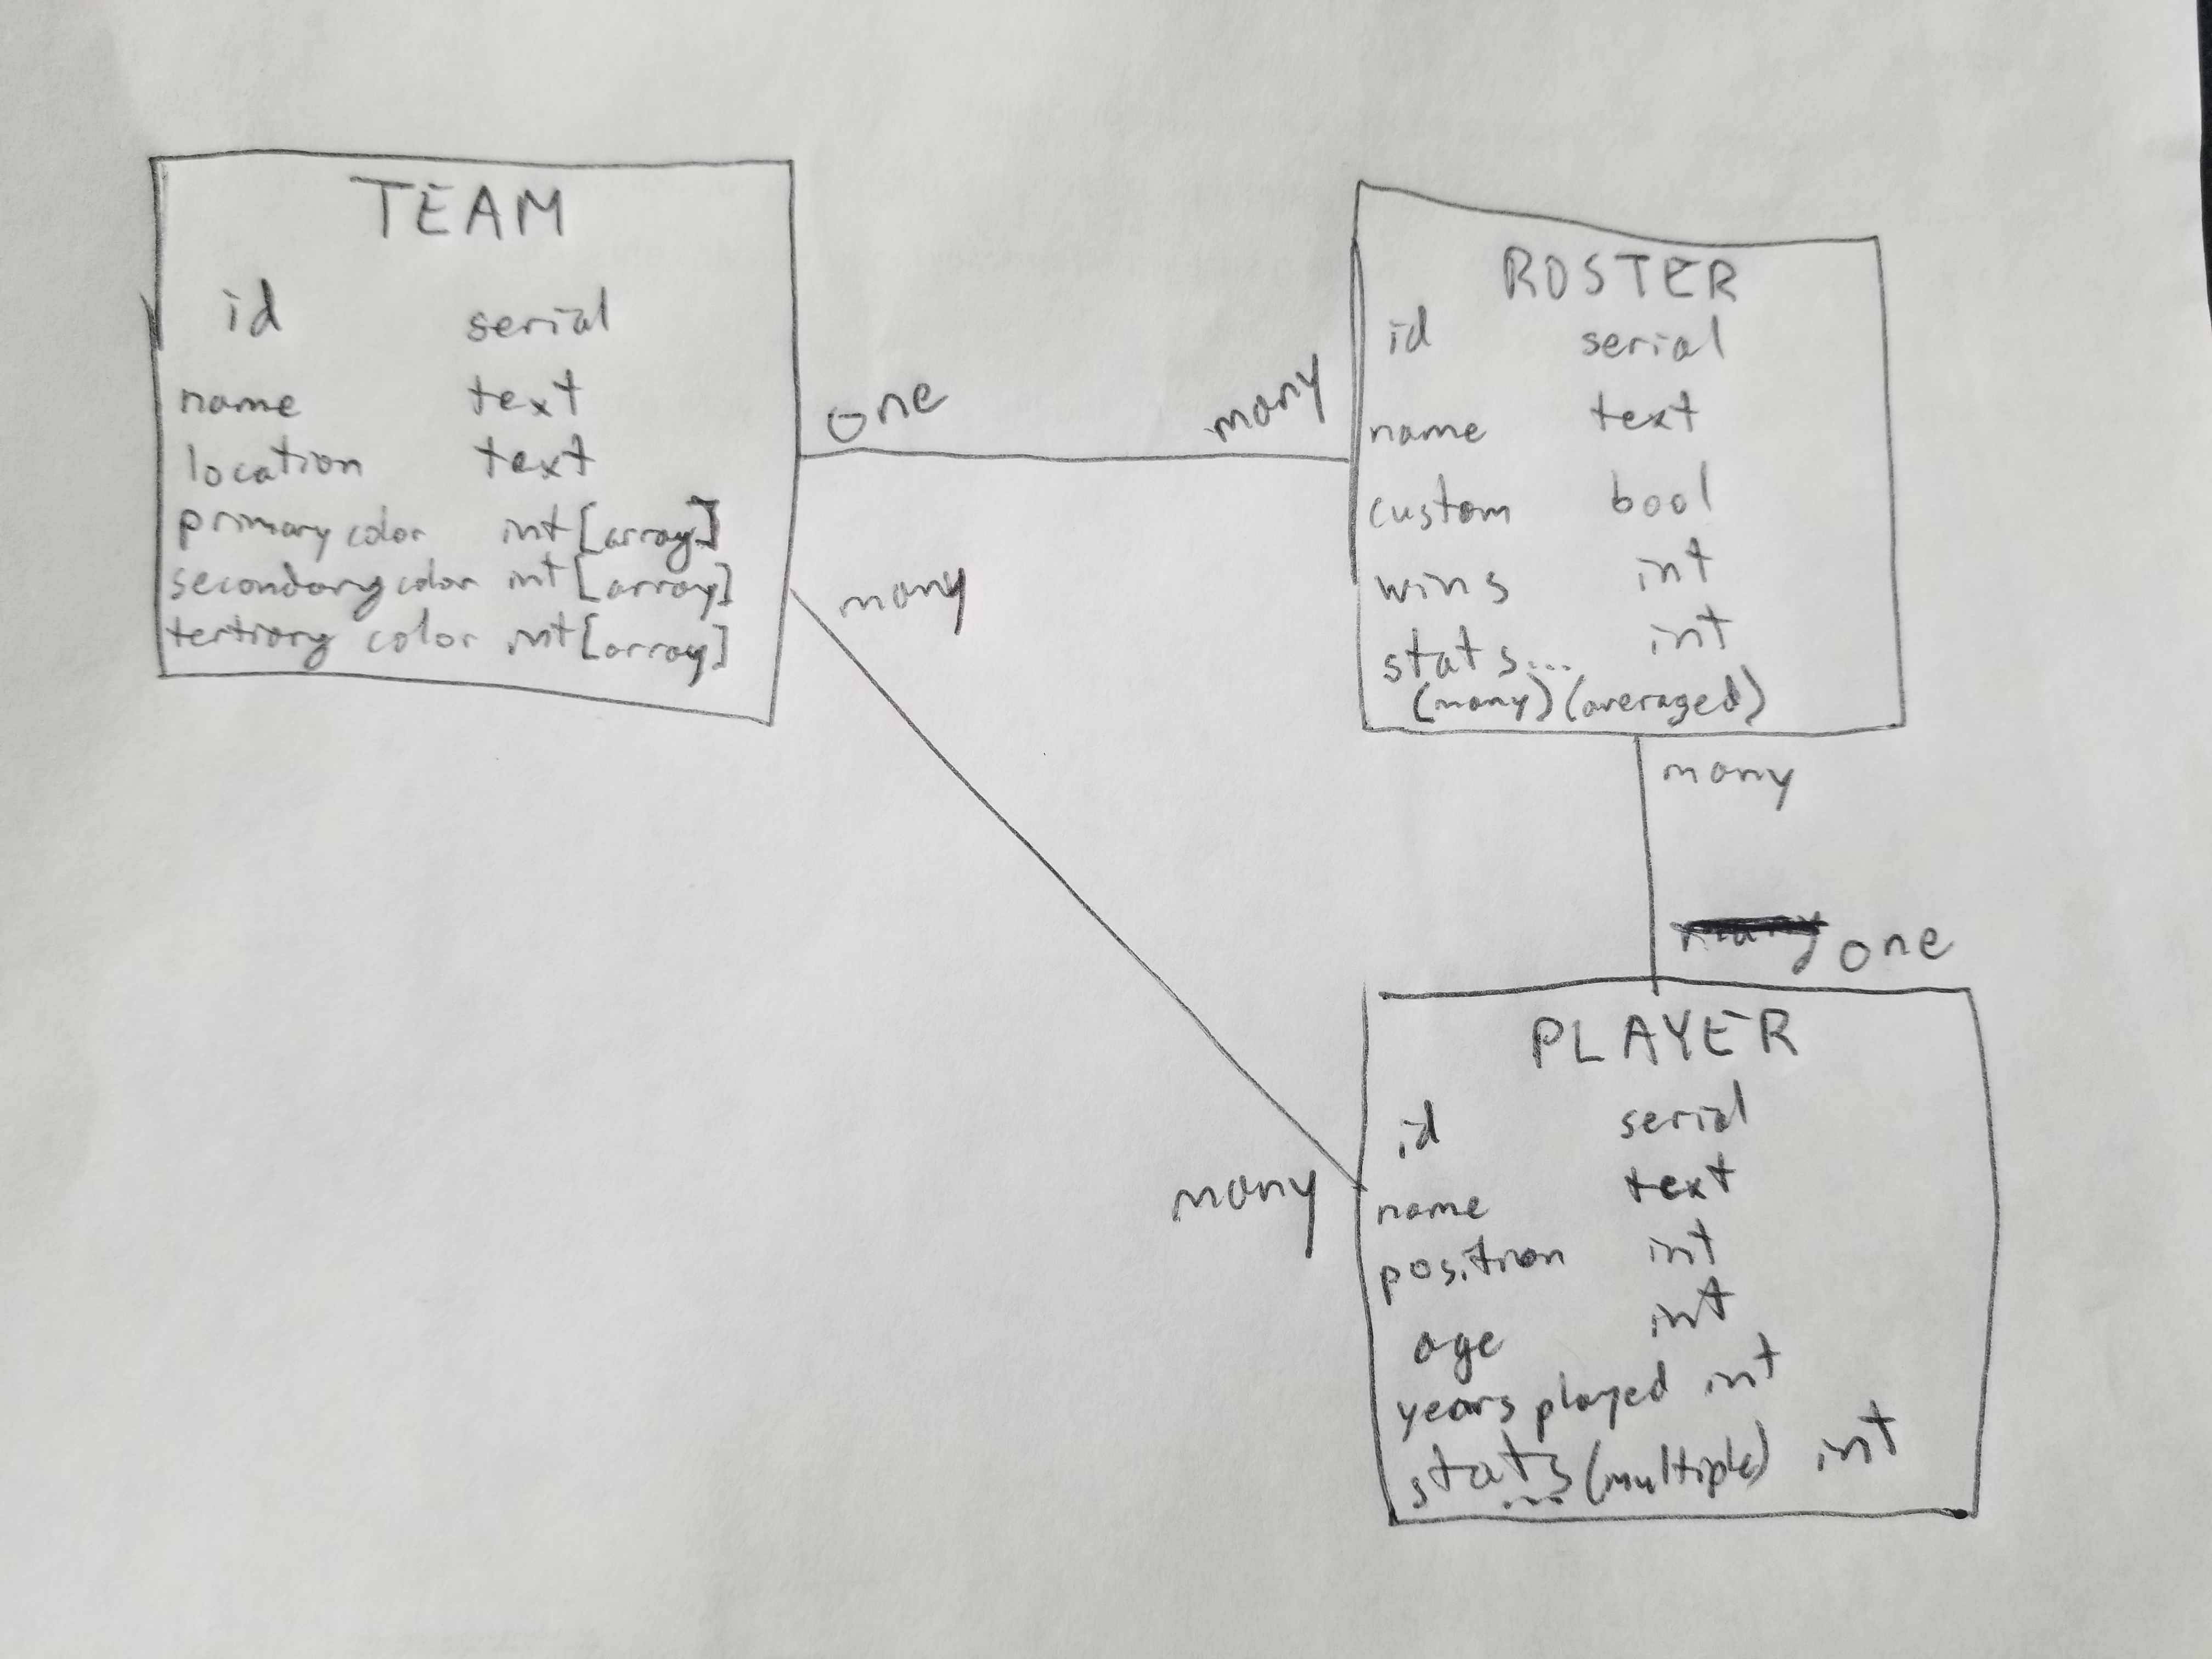 TEAM
id serial
name text
location text
primary color int [array]
secondary color int [array]
tertiary color int [array]
one
many
ROSTER
id serial
name text
custom bool
wins int
stats... int
(many) (averaged)
many
many
many
many one
PLAYER
id serial
name text
position int
age int
years played int
stats... (multiple) int